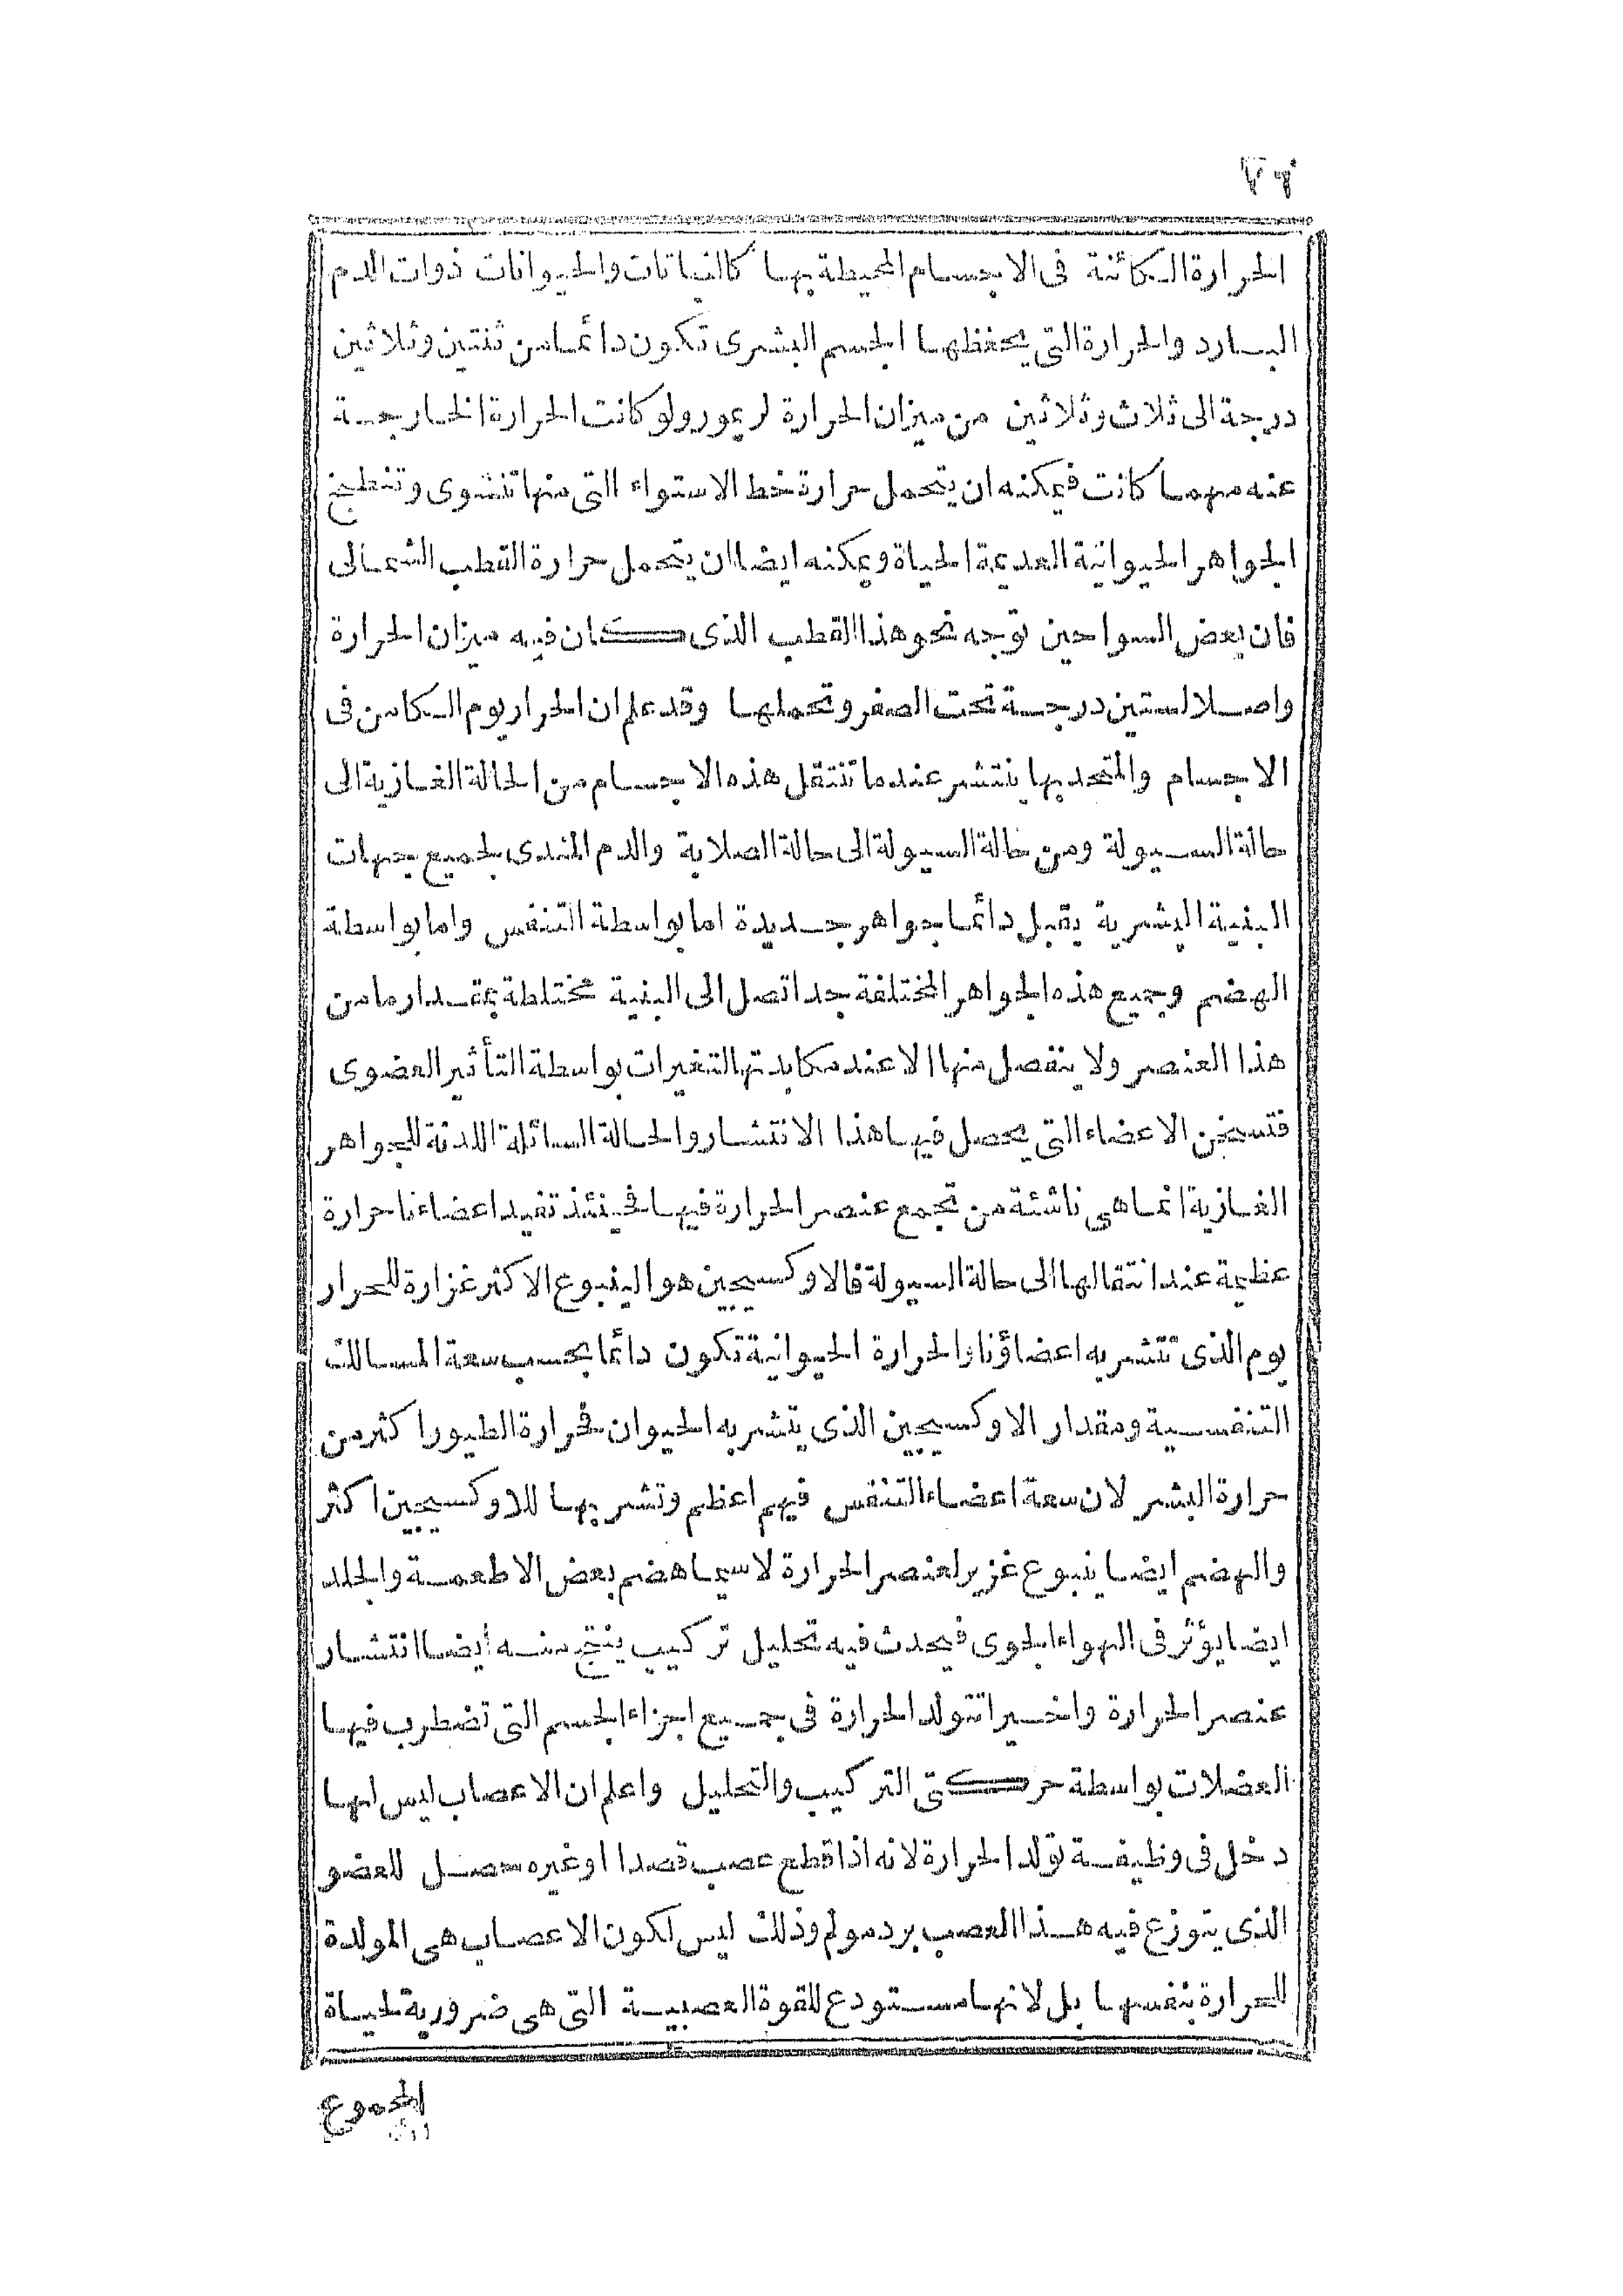 الحرارة الكائنة فى الاجسام المحيطة بها كالنباتات والحيوانات ذوات الدم
البارد والحرارة التى يحفظها الجسم البشرى تكون دائما من ثنتين وثلاثين
درجة الى ثلاث وثلاثين من ميزان الحرارة لريمور ولو كانت الحرارة الخارجة
عنه مهما كانت فيمكنه ان يتحمل حرارة خط الاستواء التى منها تنشوى وتنطبخ
الجواهر الحيوانية العديمة الحياة ويمكنه ايضا ان يتحمل حرارة القطب الشمالى
فان بعض السواحين توجه نحو هذا القطب الذى كان فيه ميزان الحرارة
واصلا لستين درجة تحت الصفر وتحملها وقد علم ان الحراريوم الكامن فى
الاجسام والمتحد بها ينتشر عندما تنتقل هذه الاجسام من الحالة الغازية الى
حالة السيولة ومن حالة السيولة الى حالة الصلابة والدم المندى لجميع جهات
البنية البشرية يقبل دائما جواهر جديدة اما بواسطة التنفس واما بواسطة
الهضم وجميع هذه الجواهر المختلفة جدا تصل الى البنية مختلطة بمقدار ما من
هذا العنصر ولا ينفصل منها الا عند مكابدتها التغيرات بواسطة التأثير العضوى
فتسخن الاعضاء التى يحصل فيها هذا الانتشار والحالة السائلة اللدنة للجواهر
الغازية انما هى ناشئة من تجمع عنصر الحرارة فيها فحينئذ تفيد اعضاءنا حرارة
عظيمة عند انتقالها الى حالة السيولة فالاوكسيجين هو الينبوع الاكثر غزارة للحرار
يوم الذى تتشربه اعضاؤنا والحرارة الحيوانية تكون دائما بحسب سعة المسالك
التنفسية ومقدار الاوكسيجين الذى يتشربه الحيوان فحرارة الطيور اكثر من
حرارة البشر لان سعة اعضاء التنفس فيهم اعظم وتشربها للاوكسيجين اكثر
والهضم ايضا ينبوع غزير لعنصر الحرارة لاسيما هضم بعض الاطعمة والجلد
ايضا يؤثر فى الهواء الجوى فيحدث فيه تحليل تركيب ينتج منه أيضا انتشار
عنصر الحرارة واخيرا تتولد الحرارة فى جميع اجزاء الجسم التى تضطرب فيها
العضلات بواسطة حركتى التركيب والتحليل واعلم ان الاعصاب ليس لها
دخل فى وظيفة تولد الحرارة لانه اذا قطع عصب قصدا او غيره حصل للعضو
الذى يتوزع فيه هذا العصب برد مولم وذلك ليس لكون الاعصاب هى المولدة
للحرارة بنفسها بل لانها مستودع للقوة العصبية التى هى ضرورية لحياة
المجموع